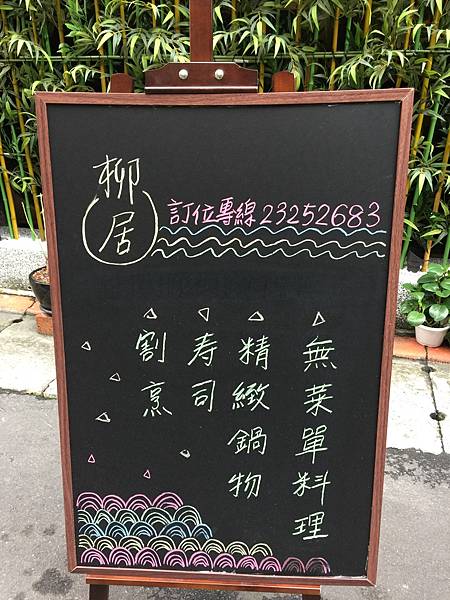 柳居
訂位專線23252683
無菜單料理
精緻鍋物
寿司
割烹